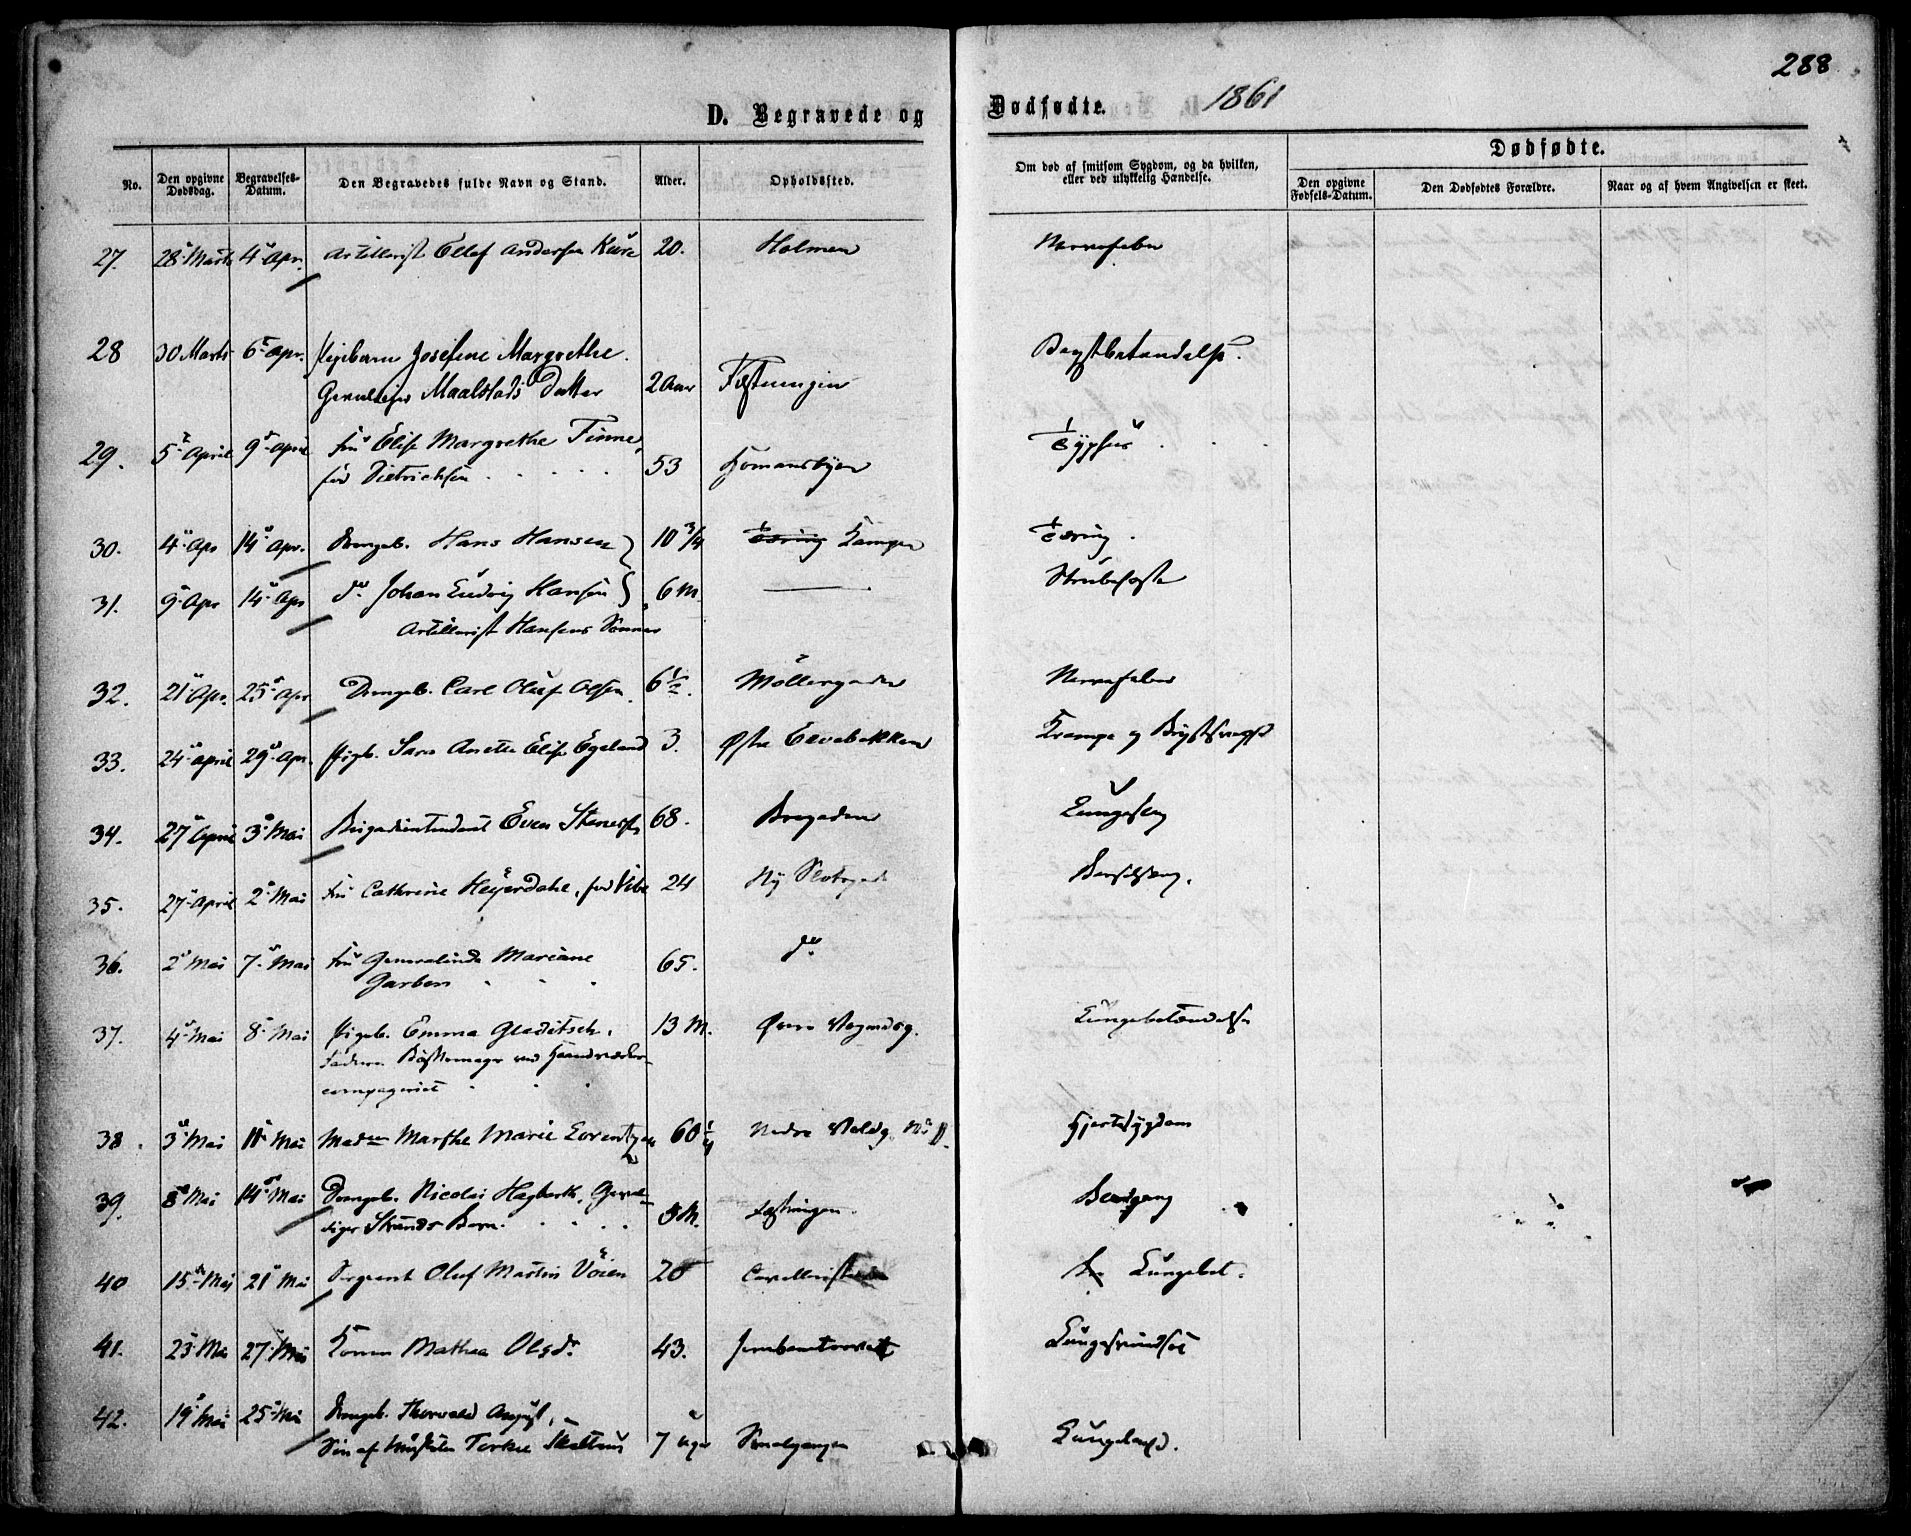 288
D. Begravede og Dødfødte. 1861
Dødfødte.
No. Den opgivne Dødsdag. Begravelses-Datum. Den Begravedes fulde Navn og Stand. Alder. Opholdssted. Om død af smitsom Sygdom, og da hvilken, eller ved ulykkelig Hændelse. Den opgivne Fødsels-Datum. Den Dødfødtes Forældre. Naar og af hvem Angivelsen er skeet.
27. 28 Marts 4 Apr. Artillerist Ellef Andersen Kure 20. Holmen Nervefeber
28 30 Marts 6 Apr. Pigebarn Josefine Margrethe
Maalstads Datter 2 Aar Fæstningen Brystbetændelse.
29. 5 April 9 April Fru Elise Margrethe Finne,
fød Dietrichsen 53 Homansbyen Typhus
30. 4 Apr 14 Apr. Drengeb. Hans Hansen 10 3/4 Tæring Kampen Tæring.
31. 9 Apr 14 Apr do Johan Ludvig Hansen 6 M. Strubehoste
Artillerist Hansens Sønner
32. 21 Apr. 25 Apr Drengeb. Carl Oluf Olsen. 6 1/2. Møllergaden Nervefeber
33. 24 April 29 Apr. Pigb. Sara Anette Elise Egeland 3. Østre Elvebakken Krampe og Brystsvaghed
34. 27 April 3 Mai Brigadeintendant Even Stenersen 68. Brogaden Lungeslag
35. 27 April 2 Mai Fru Cathrine Heyerdahl, fød Vibe 24 Ny Slotsgade Barselseng.
36. 2 Mai 7 Mai Fru Generalinde Mariane
Garben 65. do
37. 4 Mai 8 Mai Pigeb. Emma Gladitsch. 13 M. Øvre Vognmdg. Lungebetændelse
Faderen Bøssemager ved Haandværker-
compagniet
38. 3 Mai 11 Mai Madme Marthe Marie Lorentzen 60 1/4 Nedre Voldg. No Hjertesygdom
39. 8 Mai 14 Mai Drengeb. Nicolai Hagbarth, Geval-
diger Strands Barn. M. Fæstningen.
40 15 Mai 21 Mai Sergeant Oluf Martin Vöien 20 Lungebet.
41. 23 Mai 27 Mai Konen Mathea Olsdr. 43. Jernbanetorvet Lungesvindsot
42. 19 Mai 25 Mai Drengeb. Thorvald August,
Søn af Torkel 7 Uger Smalgangen